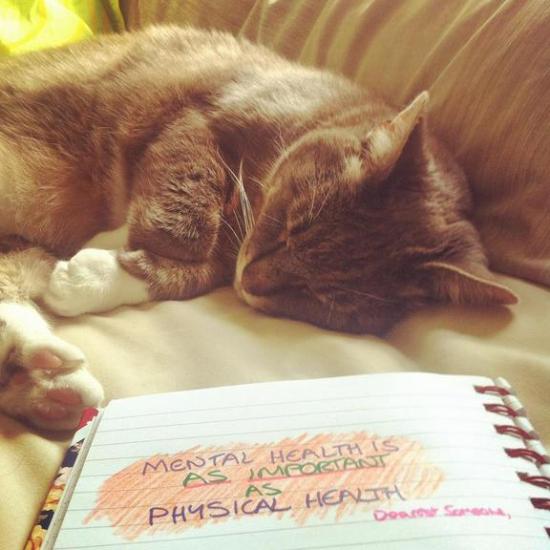 MENTAL HEALTH IS
AS IMPORTANT
AS
PHYSICAL HEALTH
Dearest Someone,